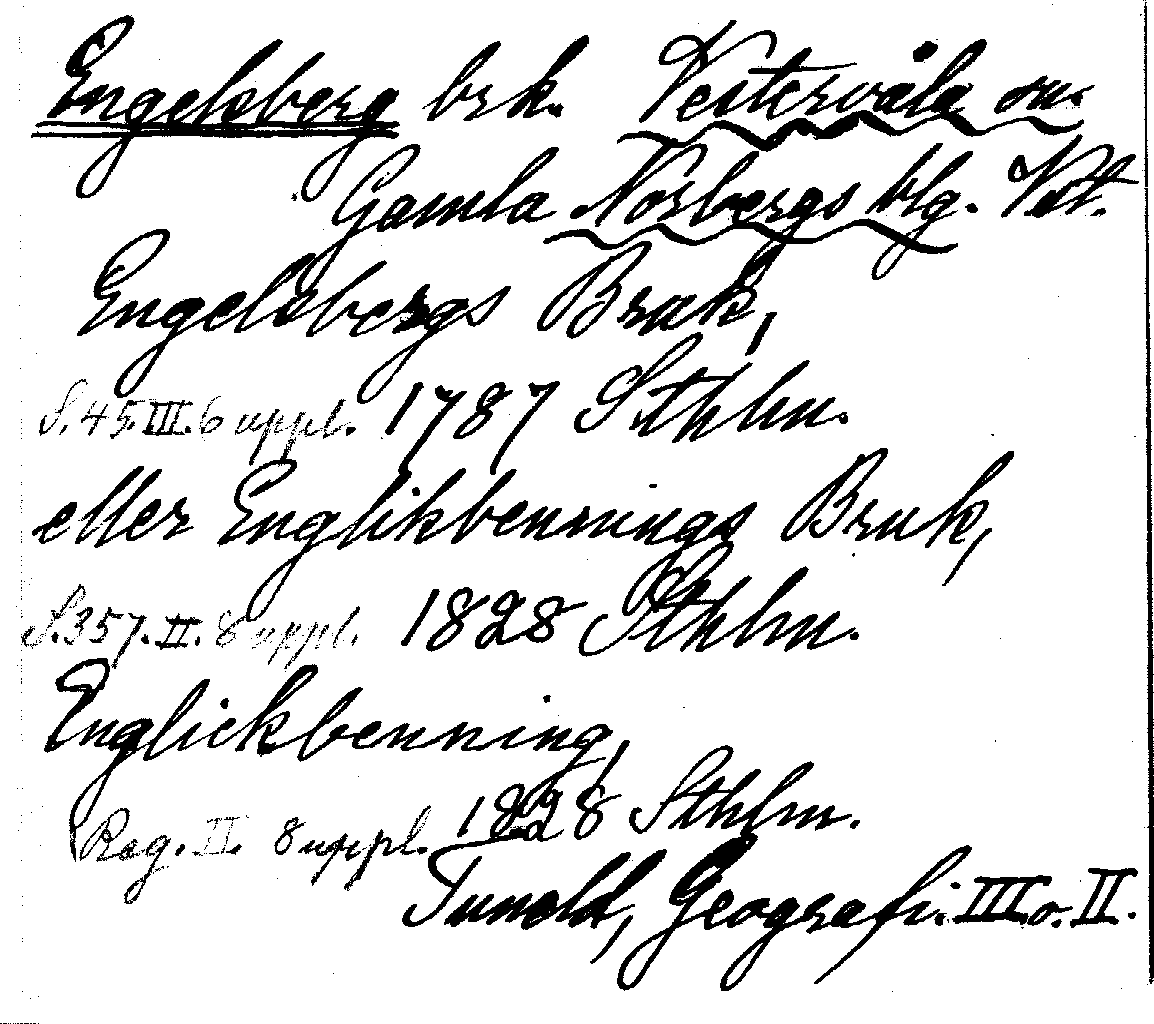 Engelsberg brk. Vestervåla sn.
Gamla Norbergs blg. Vstl.
Engelsbergs Bruk,
S. 45. III. 6 uppl. 1787 Sthlm.
eller Englikbennings Bruk,
S. 357. II. 8 uppl. 1828 Sthlm.
Englickbenning,
Reg. II. 8 uppl. 1828 Sthlm.
Tuneld, Geografi. III o. II.